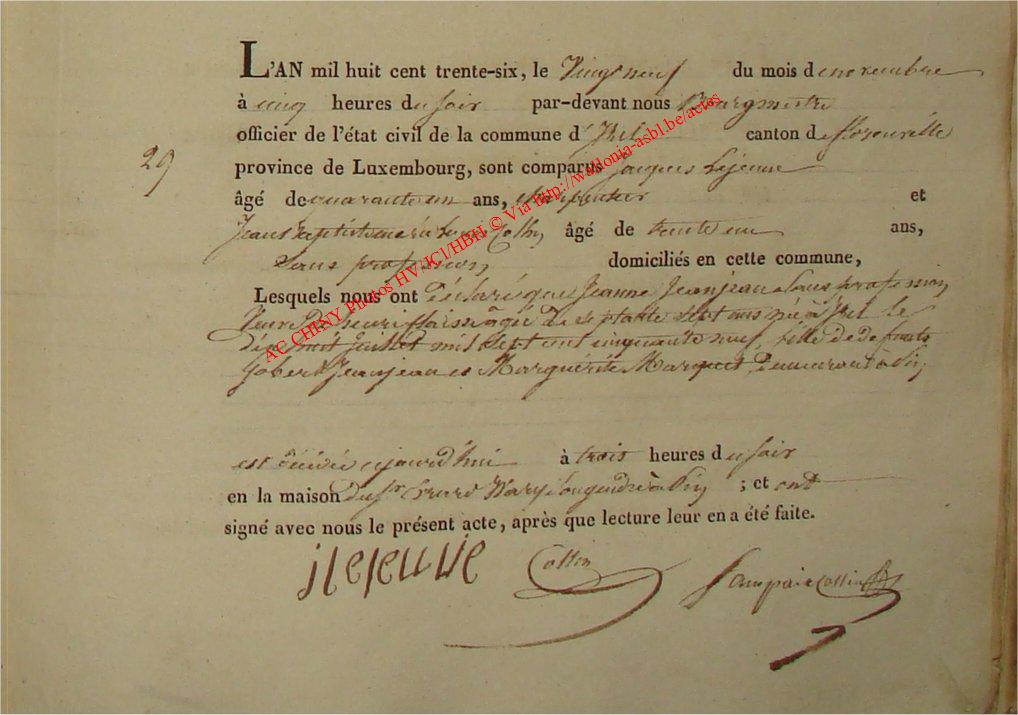 L'AN mil huit cent trente-six, le Vingt neuf du mois de novembre
à cinq heures du soir par-devant nous Bourgmestre
officier de l'état civil de la commune d'Izel canton de florenville
29
province de Luxembourg, sont comparus Jacques Lejeune
âgé de quarante un ans, charpentier et
Jean Baptiste Collin âgé de trente un ans,
Sans profession domiciliés en cette commune,
Lesquels nous ont déclaré que Jeanne Jeanjean Sans profession
Veuve de henri agée de septante sept ans née à Izel le
dix huit juillet mil sept cent cinquante neuf, fille de defunts
Gobert Jeanjean et Marguérite Marquet, demeurant à Pin
est décédée ajourd'hui à trois heures du soir
en la maison du Sr Evrard son gendre à Pin ; et ont
signé avec nous le présent acte, après que lecture leur en a été faite.
j lejeune Collin Collin
AC CHINY Photos HV-JC1/HBH © Via http://wallonia-asbl.be/actes